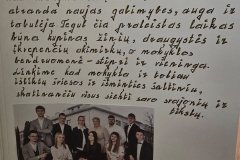 atranda naujas galimybes, auga ir
tobulėja. Tegul čia praleistas laikas
būna kupinas žinių, draugystės ir
įkvepiančių akimirkų, o mokyklos
bendruomenė - stipri ir vieninga.
Linkime kad mokykla ir toliau
išliktų šviesos ir išminties šaltiniu,
skatinančiu visus siekti savo svajonių ir
tikslų.